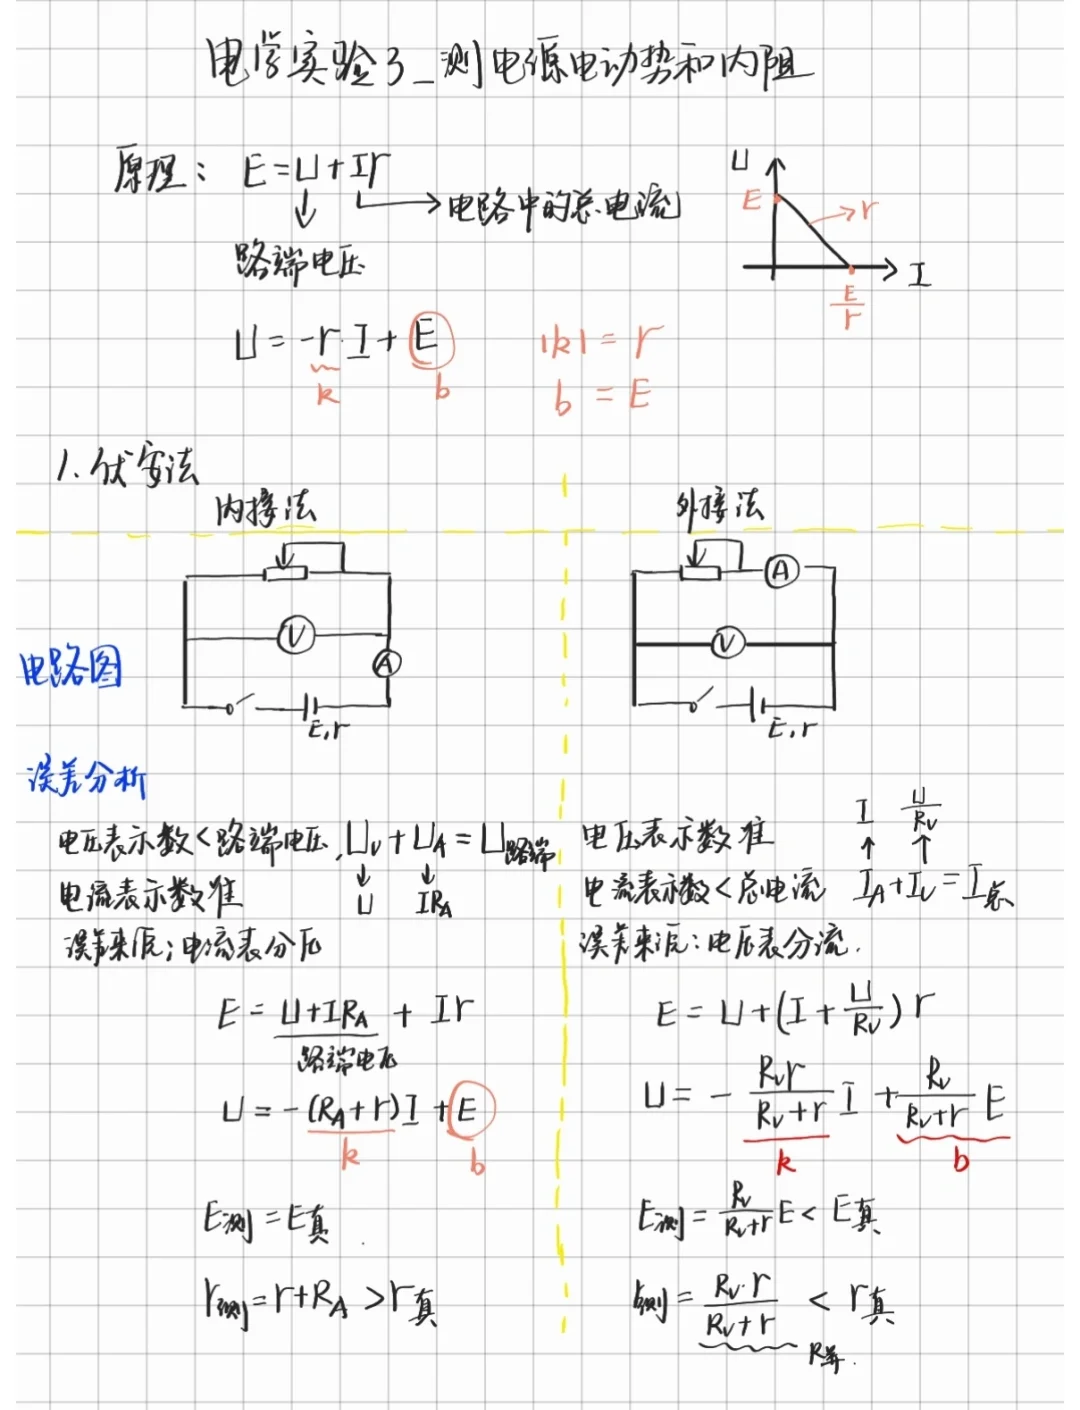 电学实验3_测电源电动势和内阻
原理: E=U+Ir
路端电压
电路中的总电流
U
E
r
I
E/r
U = -r·I + E
k
b
|k| = r
b = E
1.伏安法
内接法
V
A
E,r
外接法
A
V
E,r
电路图
误差分析
电压表示数<路端电压, U_V + U_A = U路端
U IR_A
电流表示数准
误差来源:电流表分压
E = U+IR_A + Ir
路端电压
U = -(R_A+r)I + E
k
b
E测 = E真.
r测 = r+R_A > r真
电压表示数准
I U/R_V
电流表示数<总电流 I_A+I_V=I总
误差来源:电压表分流.
E = U+(I+U/R_V)r
U = - R_V r/(R_V+r) I + R_V/(R_V+r) E
k
b
E测 = R_V/(R_V+r) E < E真
r测 = R_V·r/(R_V+r) < r真
R并.